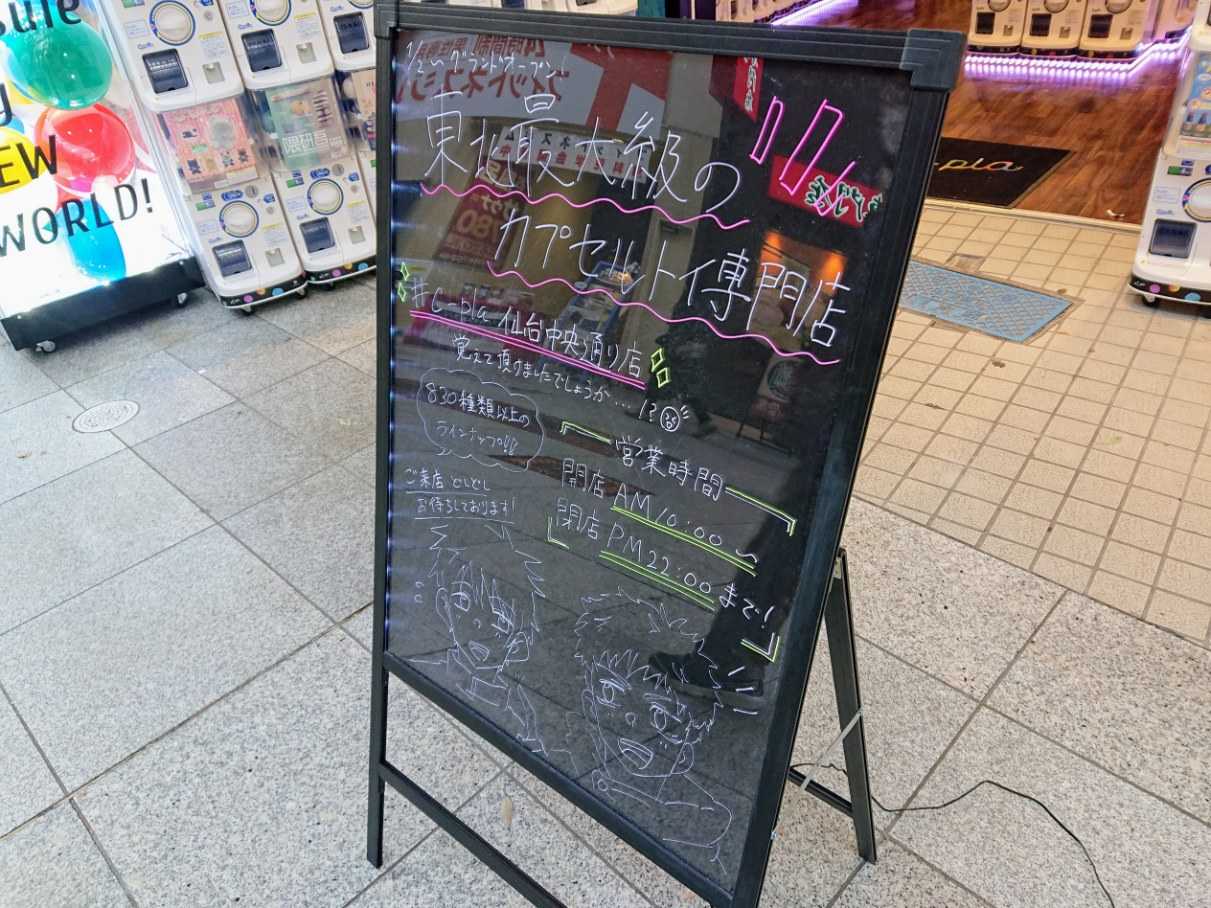 sule
NEW
WORLD!
グランドオープン!
東北最大級の
カプセルトイ専門店
#C-pla 仙台中央通り店
覚えて頂けましたでしょうか…!?
830種類以上の
ラインナップ!!
ご来店 どしどし
お待ちしております!
営業時間
開店 AM10:00〜
閉店 PM22:00まで!
pla